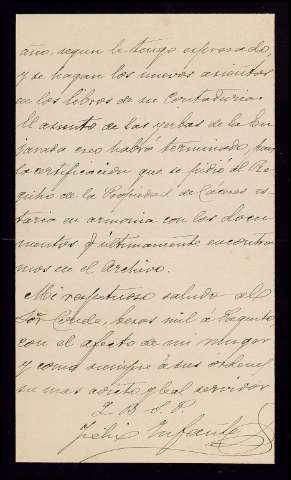 año, segun le tengo expresado,
y se hagan los nuevos asientos
en los libros de su Contaduria.
El asunto de las yerbas de la En
jarada creo habrá terminado, pues
la certificacion que se pidió al Re
gistro de la Propiedad de Cáceres es-
taria en armonia con los docu
mentos q. últimamente encontra
mos en el Archivo.
Mi respetuoso saludo al
Sor. Conde, besos mil á Paquito,
con el afecto de mi muger
y como siempre á sus ordenes
su mas adicto y leal servidor
Q. B. S. P.
Félix Infante